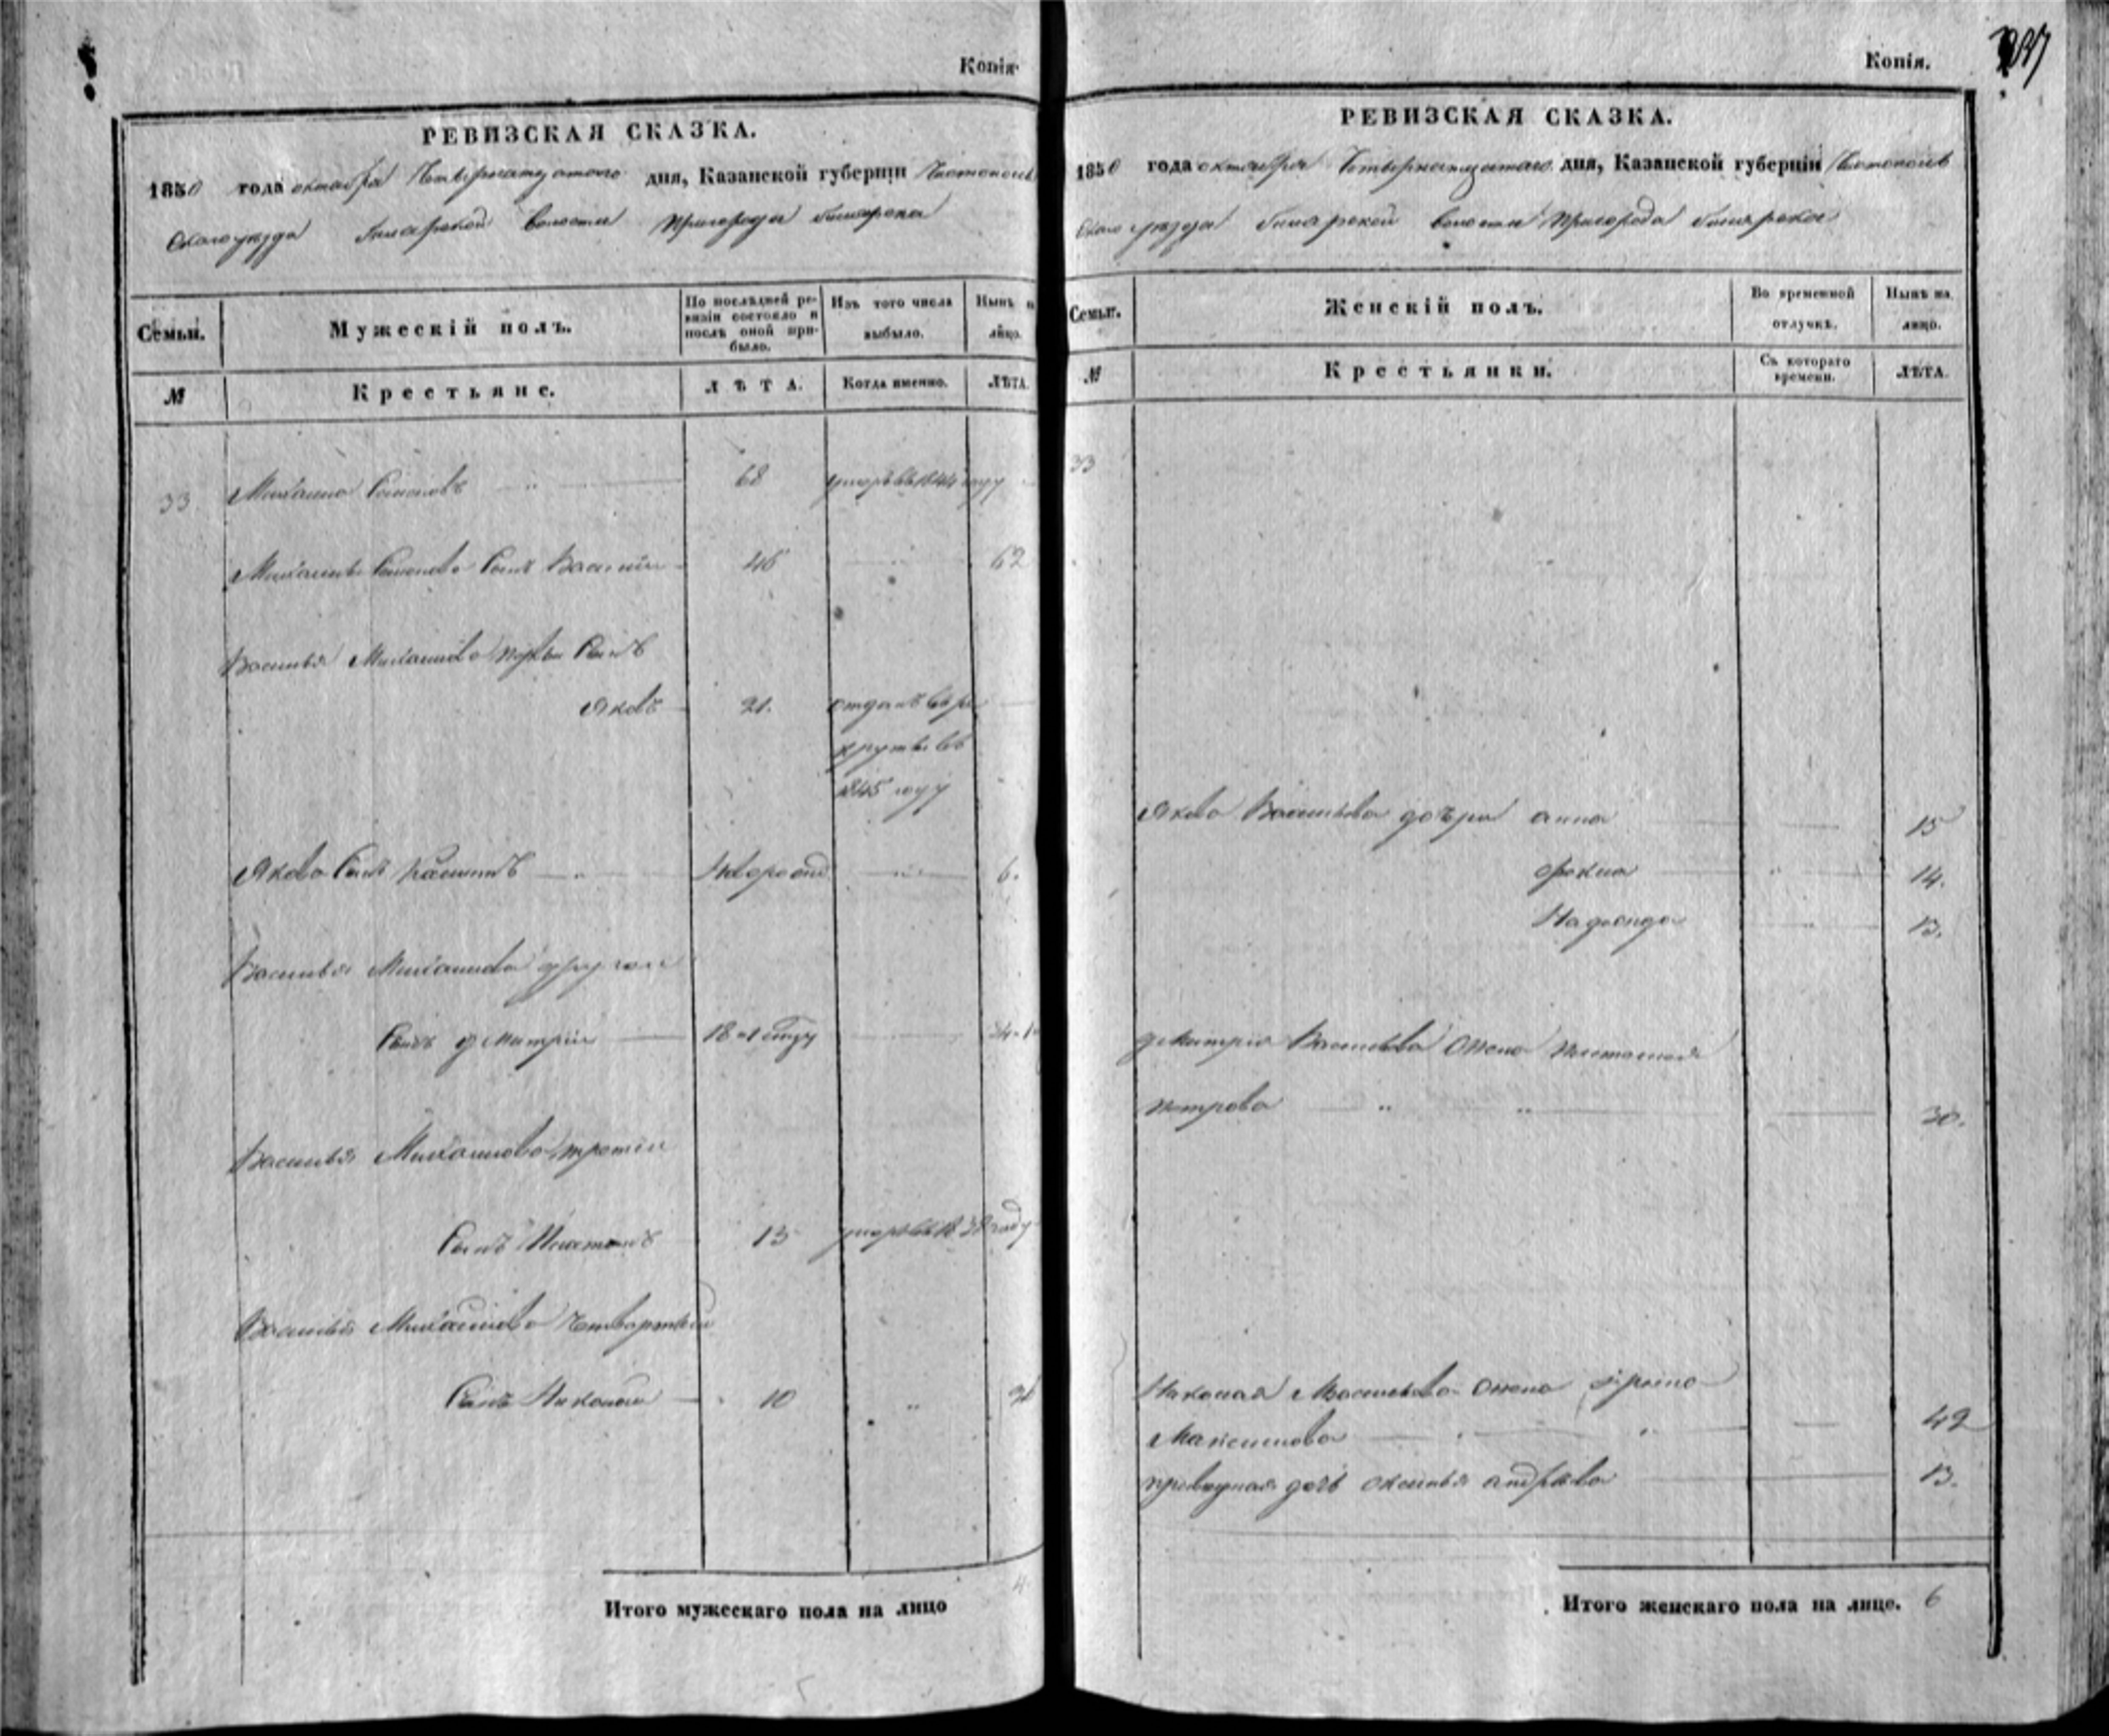 Копія.
РЕВИЗСКАЯ СКАЗКА.
1850 года октября Четвернатцатаго дня, Казанской губерніи Чистополь
скаго уезда Билярской волости пригорода Билярска
Семьи. Мужескій полъ. По послѣдней ре-
визіи состояло и
послѣ оной при-
было. Изъ того числа
выбыло. Нынѣ
лицо.
№ Крестьяне. ЛѢТА. Когда именно. ЛѢТА.
33 Михаила 68 умеръ въ 1844 году
Михаила сынъ Василии 46 62
Василья Михаилова первы сынъ
Яковъ 21. отданъ въ ре
круты въ
1845 году
Якова сынъ 6.
Василья Михаилова другои
сынъ дмитрии 18
Василья Михаилова третии
сынъ Платонъ 13 умеръ въ 18 году
Василья Михаилова четвертыи
сынъ Николаи 10
Итого мужескаго пола на лицо 4
Копія.
РЕВИЗСКАЯ СКАЗКА.
1850 года октября Четвернатцатаго дня, Казанской губерніи Чистополь
скаго уезда Билярской волости пригорода Билярска
Семьи. Женскій полъ. Во временной
отлучкѣ. Нынѣ на
лицо.
№ Крестьянки. Съ котораго
времени. ЛѢТА.
33
Якова Васильева дочери анна 15
14.
13.
дмитрия Васильева жена
петрова 30.
Николая Васильева жена
Максимова 42
приводная дочь аксинья андреева 13.
Итого женскаго пола на лице. 6